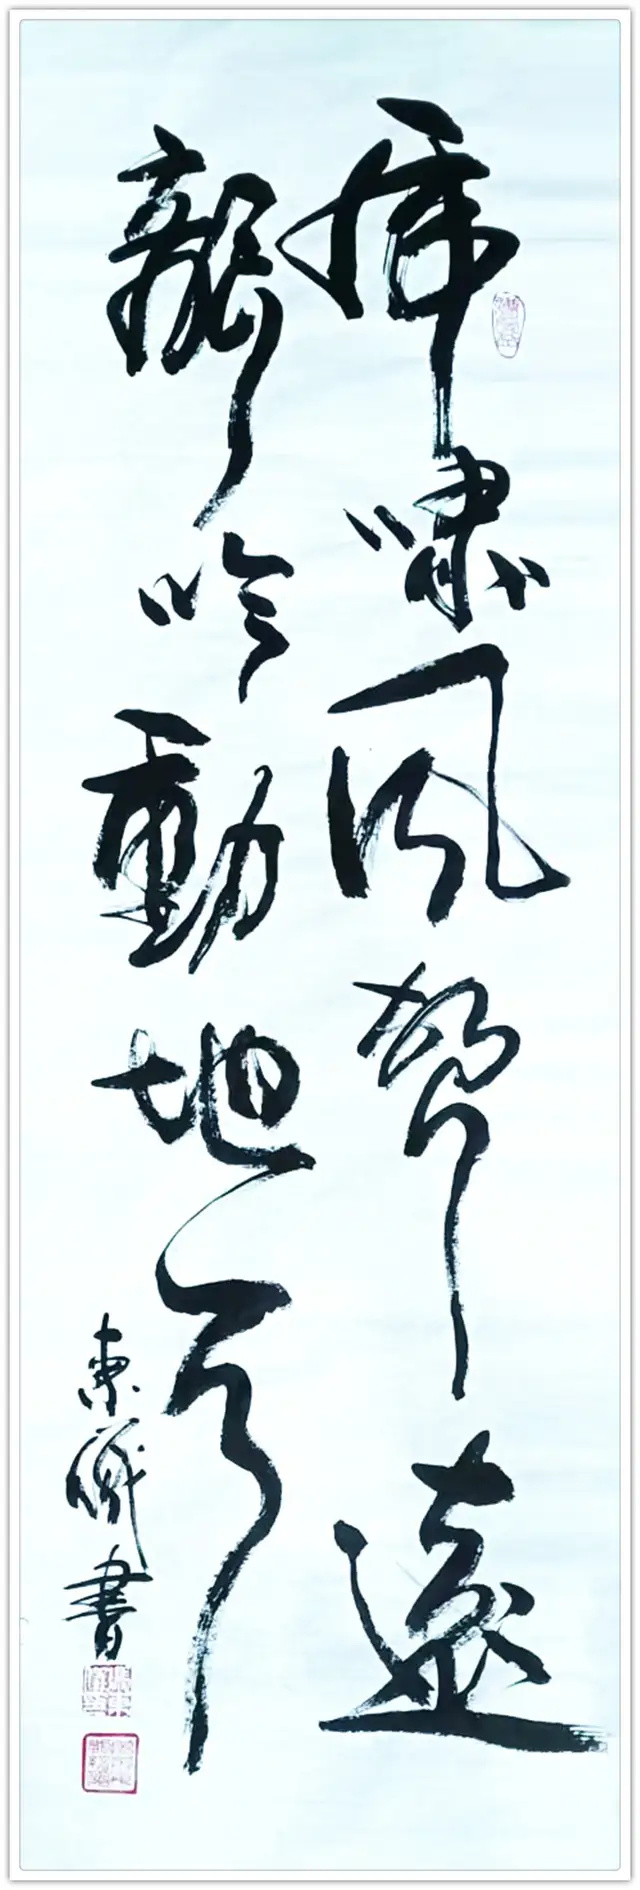 虎嘯風聲遠
龍吟動地
東書